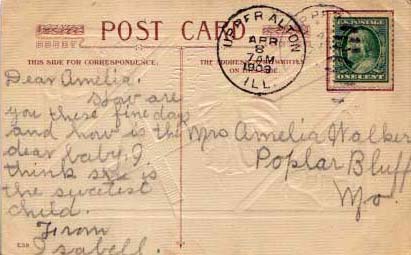 POST CARD
THIS SIDE FOR CORRESPONDENCE.
THE ADDRESS
UPPER ALTON
APR
8
7 AM
1909
ILL.
U.S. POSTAGE
ONE CENT
Dear Amelia.
How are
you these fine days
and how is the
dear baby. I
think she is
the sweetest
child.
From
Isabell.
Mrs Amelia Walker
Poplar Bluff
Mo.